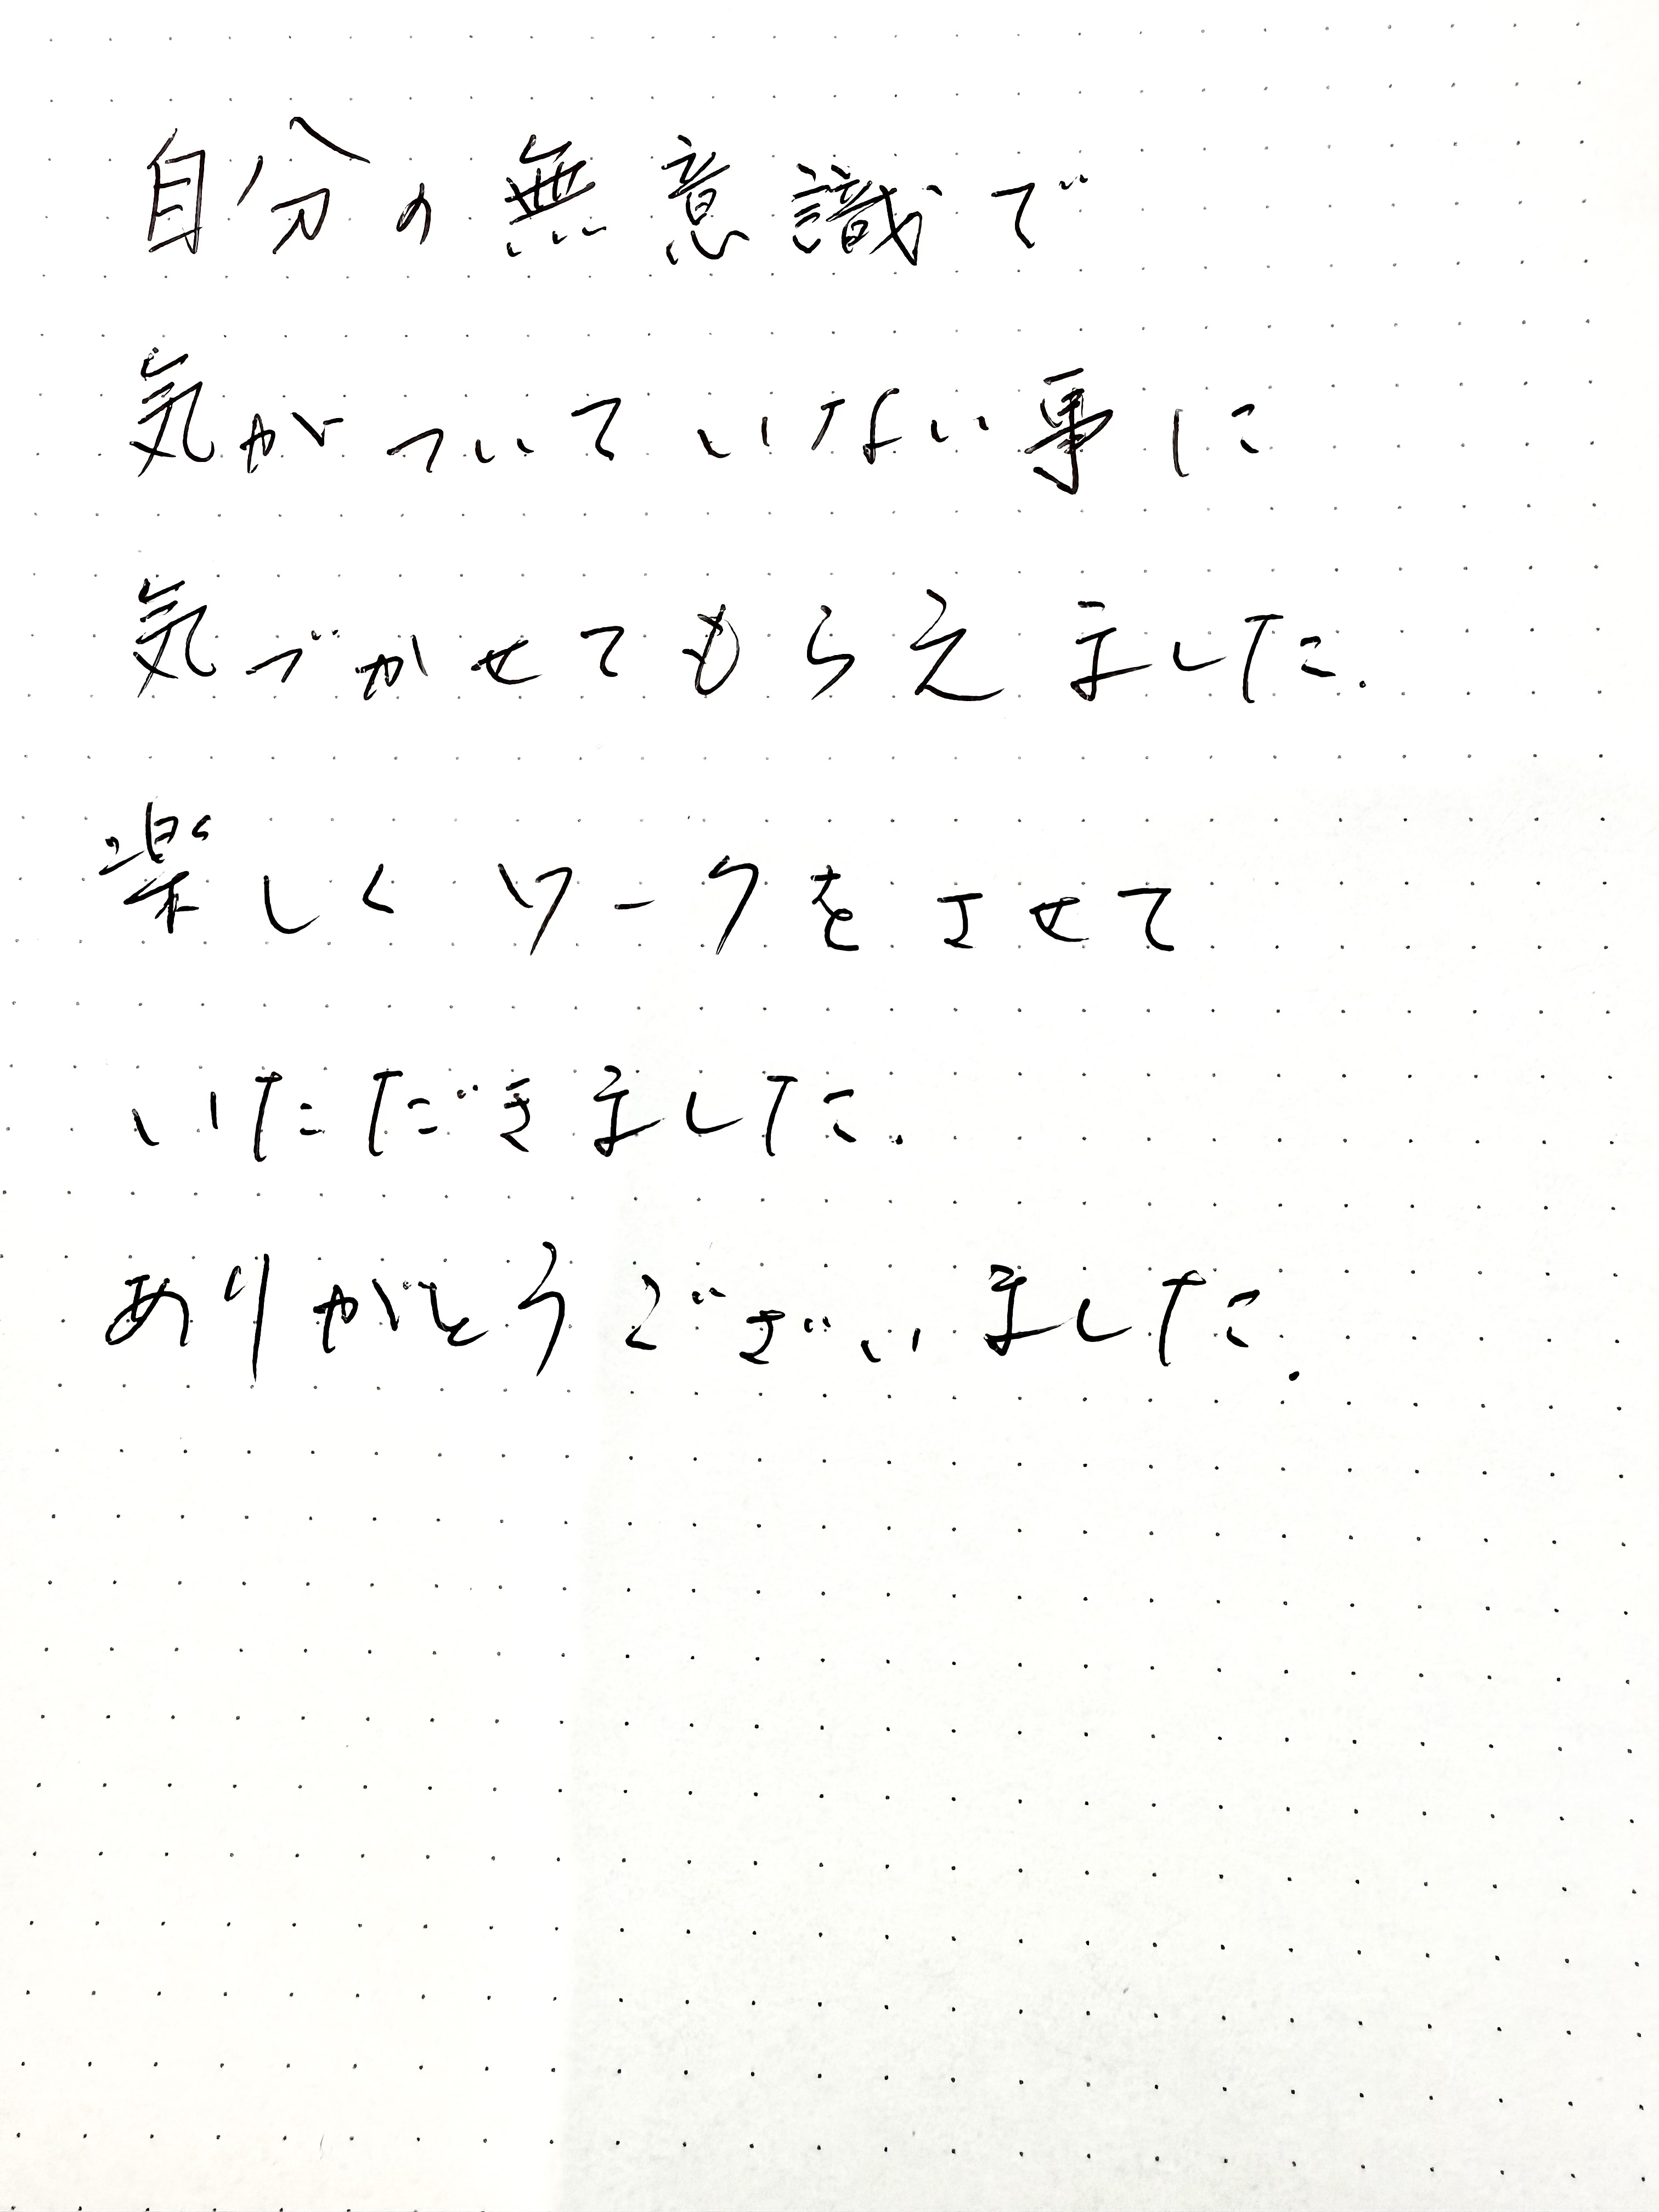 自分の無意識で
気がついていない事に
気づかせてもらえました.
楽しくワークをさせて
いただきました.
ありがとうございました.